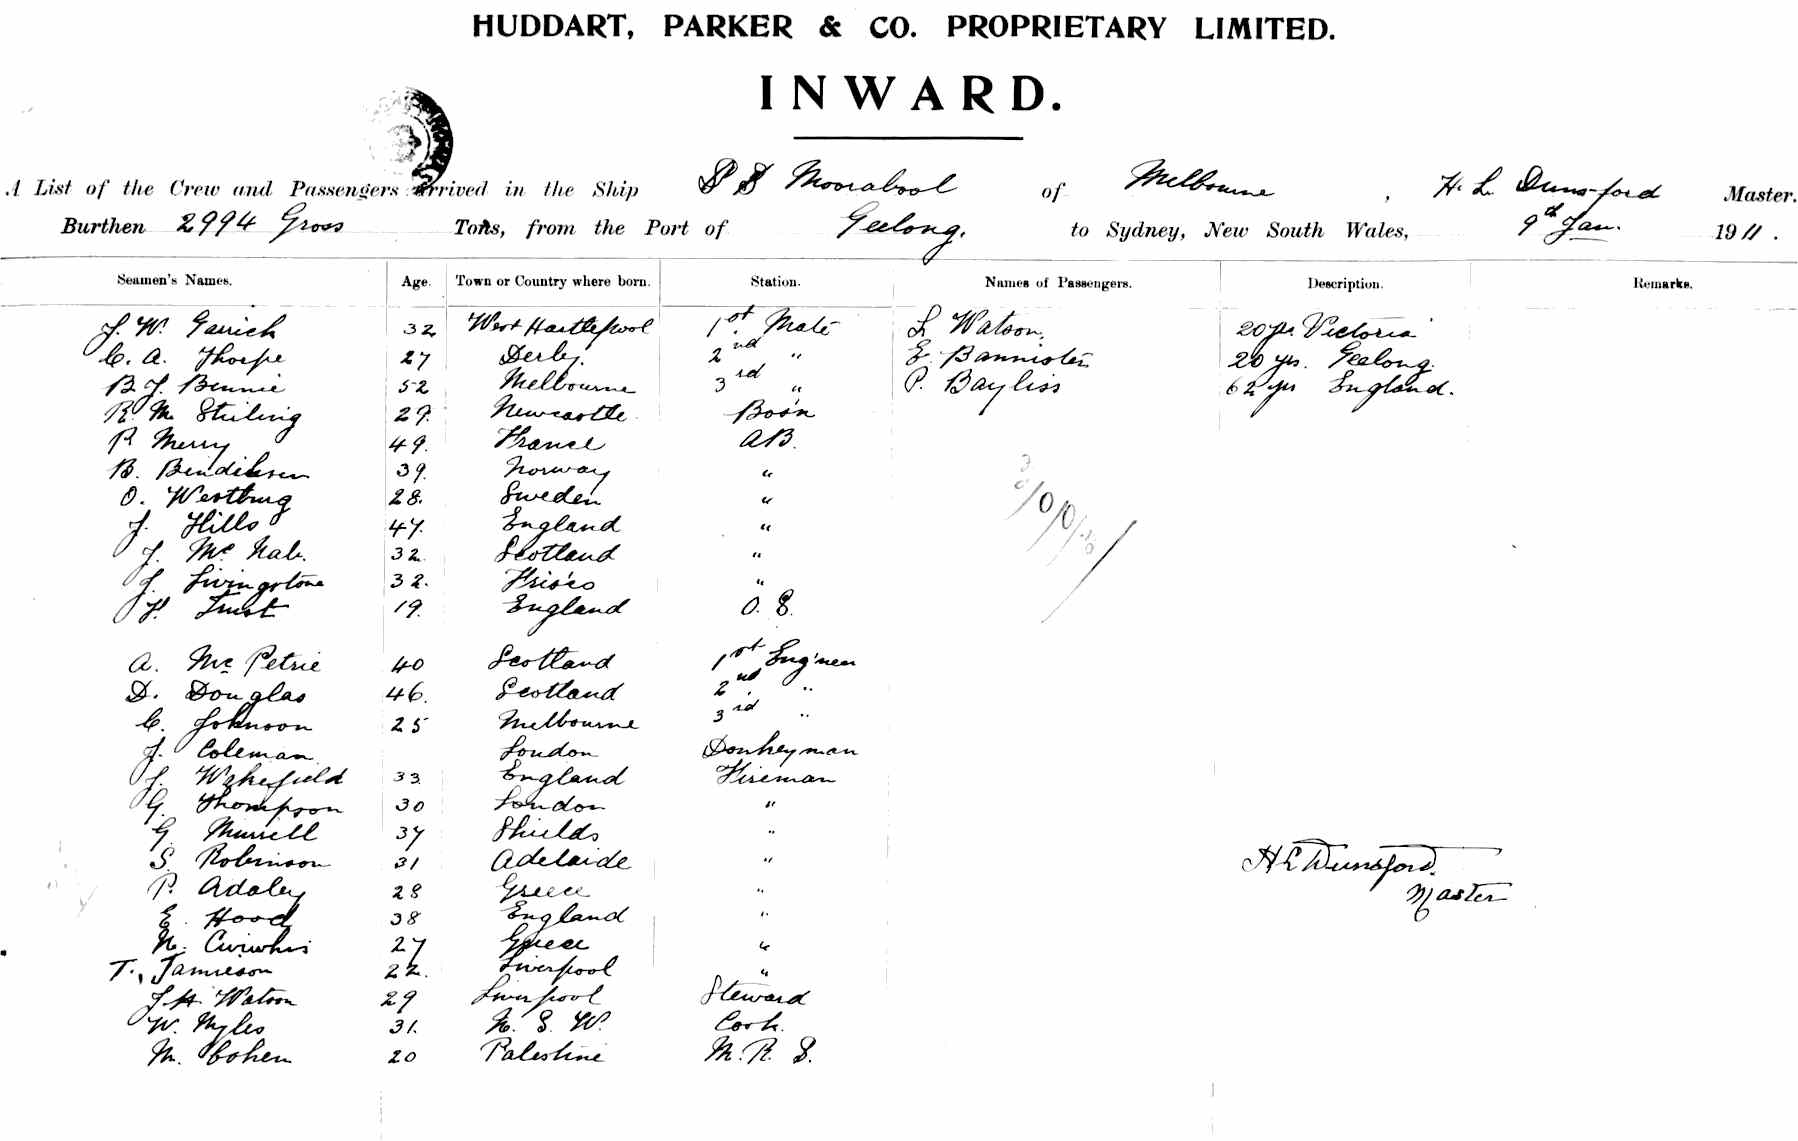 HUDDART, PARKER & CO. PROPRIETARY LIMITED.
INWARD.
A List of the Crew and Passengers arrived in the Ship S S Moorabool of Melbourne, H. L. Dunsford Master.
Burthen 2994 Gross Tons, from the Port of Geelong, to Sydney, New South Wales, 9th Jan. 1911.
Seamen's Names. Age. Town or Country where born. Station. Names of Passengers. Description. Remarks.
J. W. Garrich 32 West Hartlepool 1st Mate L Watson, 20 yrs Victoria
C. A. Thorpe 27 Derby. 2nd " E. Bannister 20 yrs. Geelong.
B J. Binnie 52 Melbourne 3rd " P. Bayliss 62 yrs England.
R. M. Stirling 29. Newcastle Bos'n
P Merry 49. France AB.
B. Bendiksen 39. Norway "
O. Westburg 28. Sweden "
J. Hills 47. England "
J. Mc Nab. 32. Scotland "
J. Livingstone 32. Fris'co "
F. Trust 19. England O. S.
A. Mc Petrie 40 Scotland 1st Eng'neer
D. Douglas 46. Scotland 2nd "
C. Johnson 25 Melbourne 3rd "
J. Coleman London Donkeyman
J. Wakefield 33 England Fireman
G. Thompson 30 London "
G. Murrell 37 Shields "
S. Robinson 31 Adelaide "
P. Adaley 28 Greece "
E. Hood 38 England "
N. 27 Greece "
T. Jamieson 22. Liverpool "
J H Watson 29 Liverpool Steward
W. Myles 31. N. S. W. Cook.
M. Cohen 20 Palestine M. R. S.
H L Dunsford.
Master